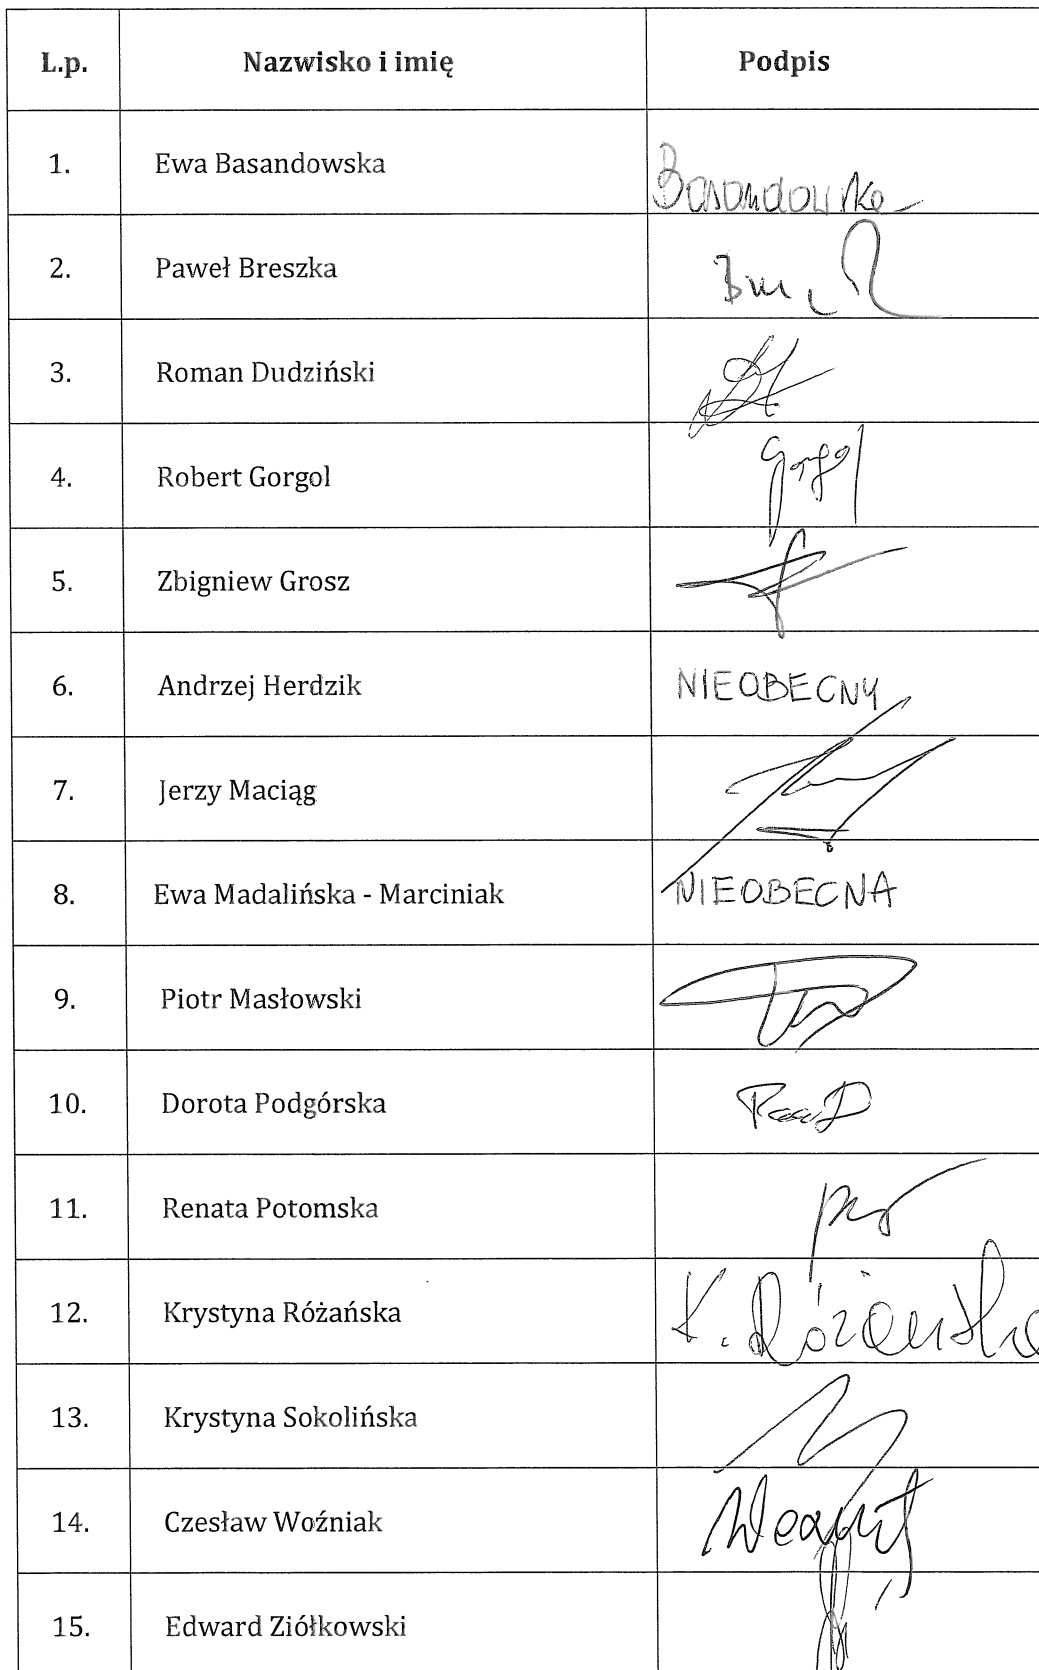 L.p. Nazwisko i imię Podpis
1. Ewa Basandowska Basandowska
2. Paweł Breszka
3. Roman Dudziński
4. Robert Gorgol Gorgol
5. Zbigniew Grosz
6. Andrzej Herdzik NIEOBECNY
7. Jerzy Maciąg
8. Ewa Madalińska - Marciniak NIEOBECNA
9. Piotr Masłowski
10. Dorota Podgórska
11. Renata Potomska
12. Krystyna Różańska K. Różańska
13. Krystyna Sokolińska
14. Czesław Woźniak
15. Edward Ziółkowski